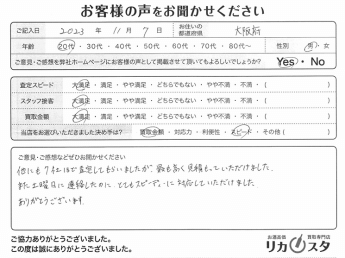 お客様の声をお聞かせください
ご記入日 2023 年 11 月 7 日 お住いの都道府県 大阪府
年齢 20代・30代・40代・50代・60代・70代・80代〜 性別 男・女
ご意見・ご感想を弊社ホームページにお客様の声として掲載させて頂いてもよろしいでしょうか? Yes・No
査定スピード 大満足・満足・やや満足・どちらでもない・やや不満・不満・( )
スタッフ接客 大満足・満足・やや満足・どちらでもない・やや不満・不満・( )
買取金額 大満足・満足・やや満足・どちらでもない・やや不満・不満・( )
当店をお選びいただきました決め手は? 買取金額・対応力・利便性・スピード・その他( )
ご意見・ご感想などぜひお聞かせください
他にも7社ほど査定してもらいましたが、最も高く見積もっていただけました。
また土曜日に連絡したのに、とてもスピーディーに対応していただけました。
ありがとうございます。
ご協力ありがとうございました。
この度は誠にありがとうございました。
お酒高価買取専門店
リカスタ